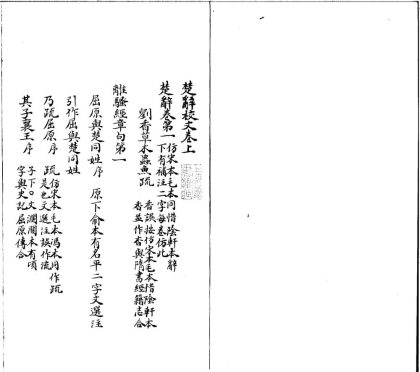 楚辭校文卷上
楚辭卷第一 仿宋本毛本同惜陰軒本辭
下有補注二字每卷仿此
劉杳草木蟲魚疏 杳誤按仿宋本毛本惜陰軒本
杳並作杳與隋書經籍志合
離騷經章句第一
屈原與楚同姓序 原下俞本有名平二字文選注
引作屈與楚同姓
乃疏屈原序 疏仿宋本毛本馮本同作疏
是也文選注誤作流
其子襄王序 子下㕥文瀾閣本有頃
字與史記屈原傳合